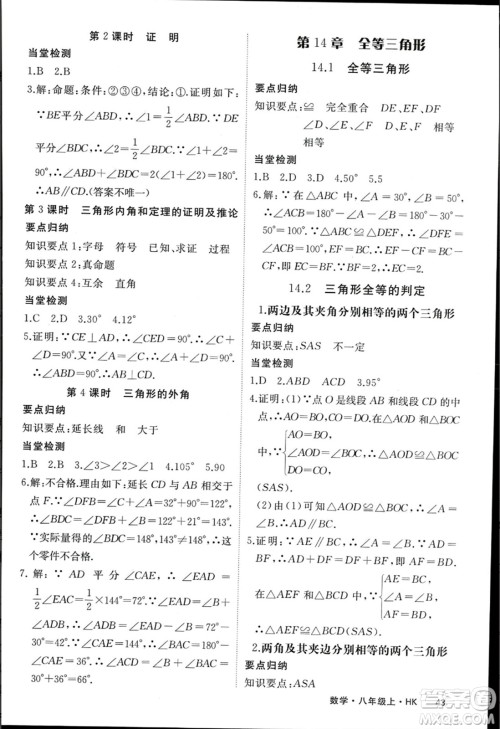 第2课时 证 明
当堂检测
1.B 2.B
3.解:命题:条件:②③④,结论:①.证明如下:
∵BE平分∠ABD,∴∠1=1/2∠ABD.∵DE
平分∠BDC,∴∠2=1/2∠BDC.∵∠1+∠2=
90°,∴∠ABD+∠BDC=2(∠1+∠2)=
180°.(答案不唯一)
第3课时 三角形内角和定理的证明及推论
要点归纳
知识要点1:字母 符号 已知 求证 过程
知识要点2:真命题
知识要点4:互余 直角
当堂检测
1.D 2.D 3.30° 4.90°
5.证明:∵CE⊥AD,∴∠CED=90°,∴∠C+
∠D=90°.∵∠A=∠C,∴∠A+∠D=90°,
∴∠ABD=90°,∴△ABD是直角三角形.
第4课时 三角形的外角
要点归纳
知识要点:延长线 和 大于
当堂检测
1.B 2.B 3.∠3>∠2>∠1 4.105° 5.90
6.解:不合格.理由如下:延长CD与AB相交于
点F.∴∠DFB=∠C+∠A=32°+90°=
122°,∴∠BDC=∠DFB+∠B=122°+
26°=148°.∵∠BDC=143°,143°≠148°,∴这
个零件不合格.
7.解:∵AD平分∠CAE,∴∠EAD=
1/2∠EAC=1/2(∠B+∠C).又∵∠EAD=
∠ADB,∴∠ADB=1/2(∠B+∠C).又∵
∠ADB=∠DAC+∠C,∠DAC=∠EAD=
∠ADB,∴∠ADB=∠ADB+∠C,∴∠C=
0°,这与题意矛盾,∴∠EAD与∠ADB不可能
相等.
第14章 全等三角形
14.1 全等三角形
要点归纳
知识要点:≌ 完全重合 DE、EF、DF
∠D、∠E、∠F 相等 相等
当堂检测
1.B 2.D 3.D 4.50° 5.5
6.解:∵在△ABC中,∠A=30°,∠B=50°,
∴∠ACB=180°-∠A-∠B=100°.
∵△ABC≌△DEF,∴∠DFE=∠ACB=
100°,EF=BC,∴EF-CF=BC-CF,
即EC=BF.∵BF=2,∴EC=2.
14.2 三角形全等的判定
1.两边及其夹角分别相等的两个三角形
要点归纳
知识要点:SAS 不一定
当堂检测
1.D 2.ABD ACD 3.95°
4.证明:(1)∵点O是线段AB和线段CD的中
点,∴AO=BO,DO=CO.在△AOD和△BOC
中,∵{AO=BO,
∠AOD=∠BOC,∴△AOD≌△BOC
DO=CO,
(SAS).
(2)由(1)可知△AOD≌△BOC,∴∠A=∠B,
∴AD∥BC.
5.证明:∵AE∥BC,∴∠EAD=∠B.在△ADE
和△BCA中,∵{AE=BC,
∠EAD=∠B,
AD=BC,
∴△ADE≌△BCA(SAS),∴DE=CA.
2.两角及其夹边分别相等的两个三角形
要点归纳
知识要点:ASA
数学·八年级上·HK 43